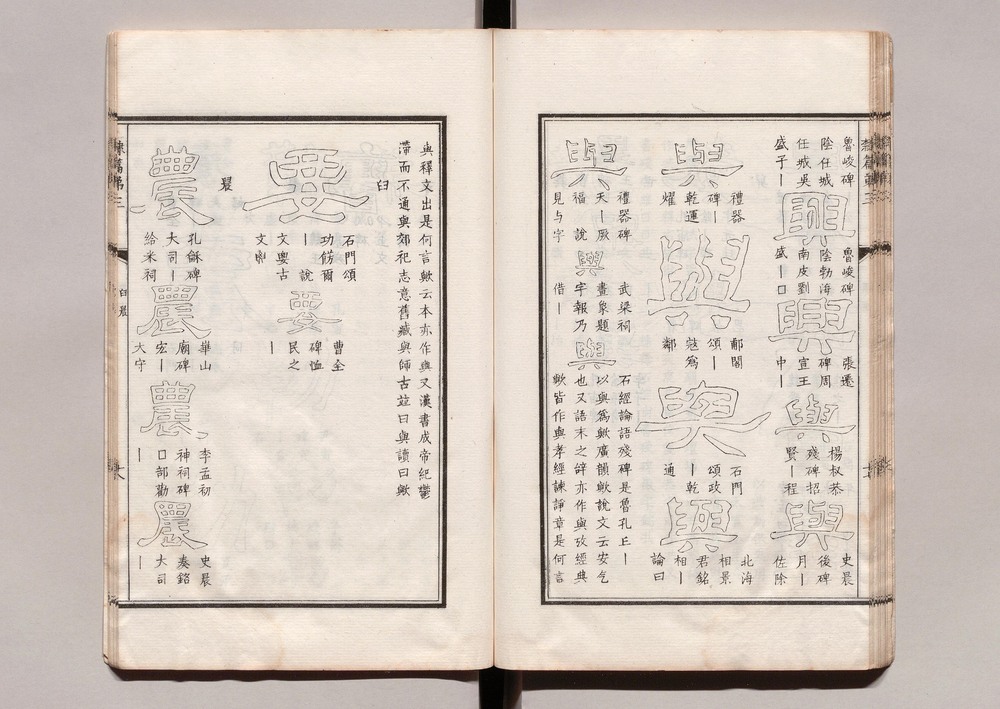 魯峻碑
陰任城
任城吳
盛子丨
興
魯峻碑
陰勃海
南皮劉
盛丨口
興
張遷
碑周
宣王
中丨
興
楊叔恭
殘碑招
賢丨程
興
史晨
後碑
月丨
佐除
與
禮器
碑丨
乾運
燿
與
郙閣
頌丨
寇為
鄰
與
石門
頌政
丨乾
通
與
北海
相景
君銘
相丨
論曰
與
禮器碑
天丨厥
福 說
見与字
與
武梁祠
畫象題
字報乃
借丨
與
石經論語殘碑是魯孔丘丨
以與為歟廣韻歟說文云安气
也又語末之辤亦作與攷經典
歟皆作與孝經諫諍章是何言
與釋文出是何言歟云本亦作與又漢書成帝紀鬱
滯而不通與郊祀志意舊臧與師古竝曰與讀曰歟
𦥑
要
石門頌
功飭爾
丨 說
文要古
文
要
曹全
碑恤
民之
丨
晨
農
孔龢碑
大司丨
給米祠
農
華山
廟碑
宏丨
大守
農
李孟初
神祠碑
口部勸
丨
農
史晨
奏銘
大司
丨
隸篇第三
臼晨